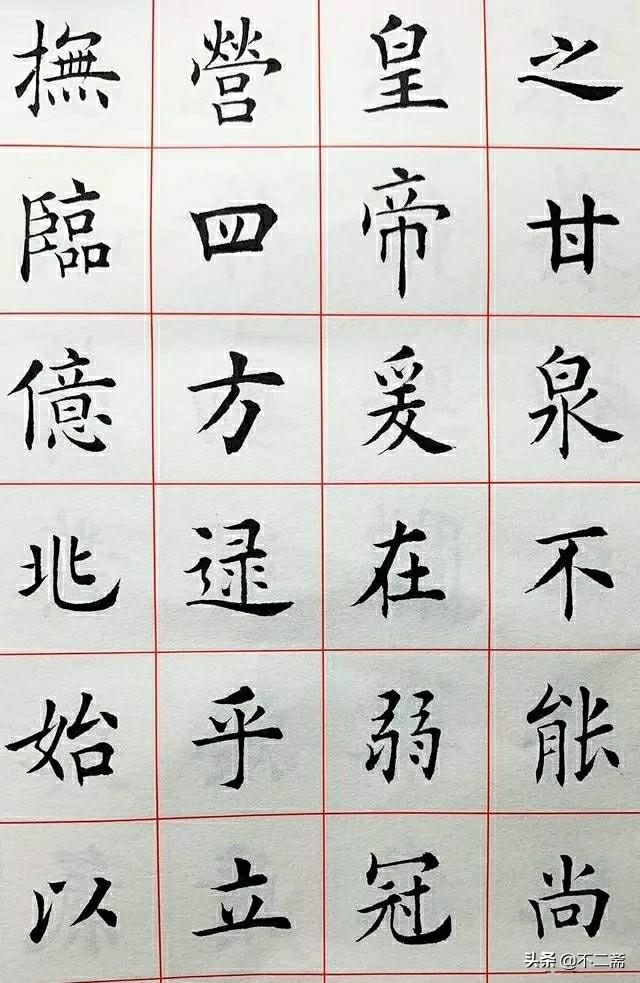 之甘泉不能尚
皇帝爰在弱冠
營四方逮乎立
撫臨億兆始以
头条 @不二斋